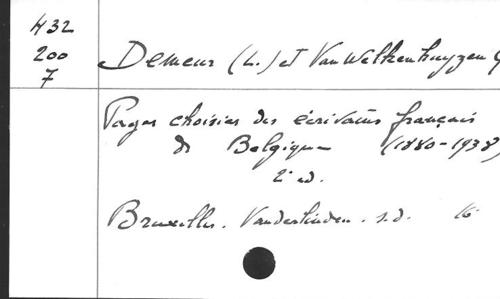 432
200
7
Demeur (L.) et Van Welkenhuyzen G
Pages choisies des écrivains français
de Belgique (1880-1938)
2e ed.
Bruxelles. Vanderlinden. s.d. 16